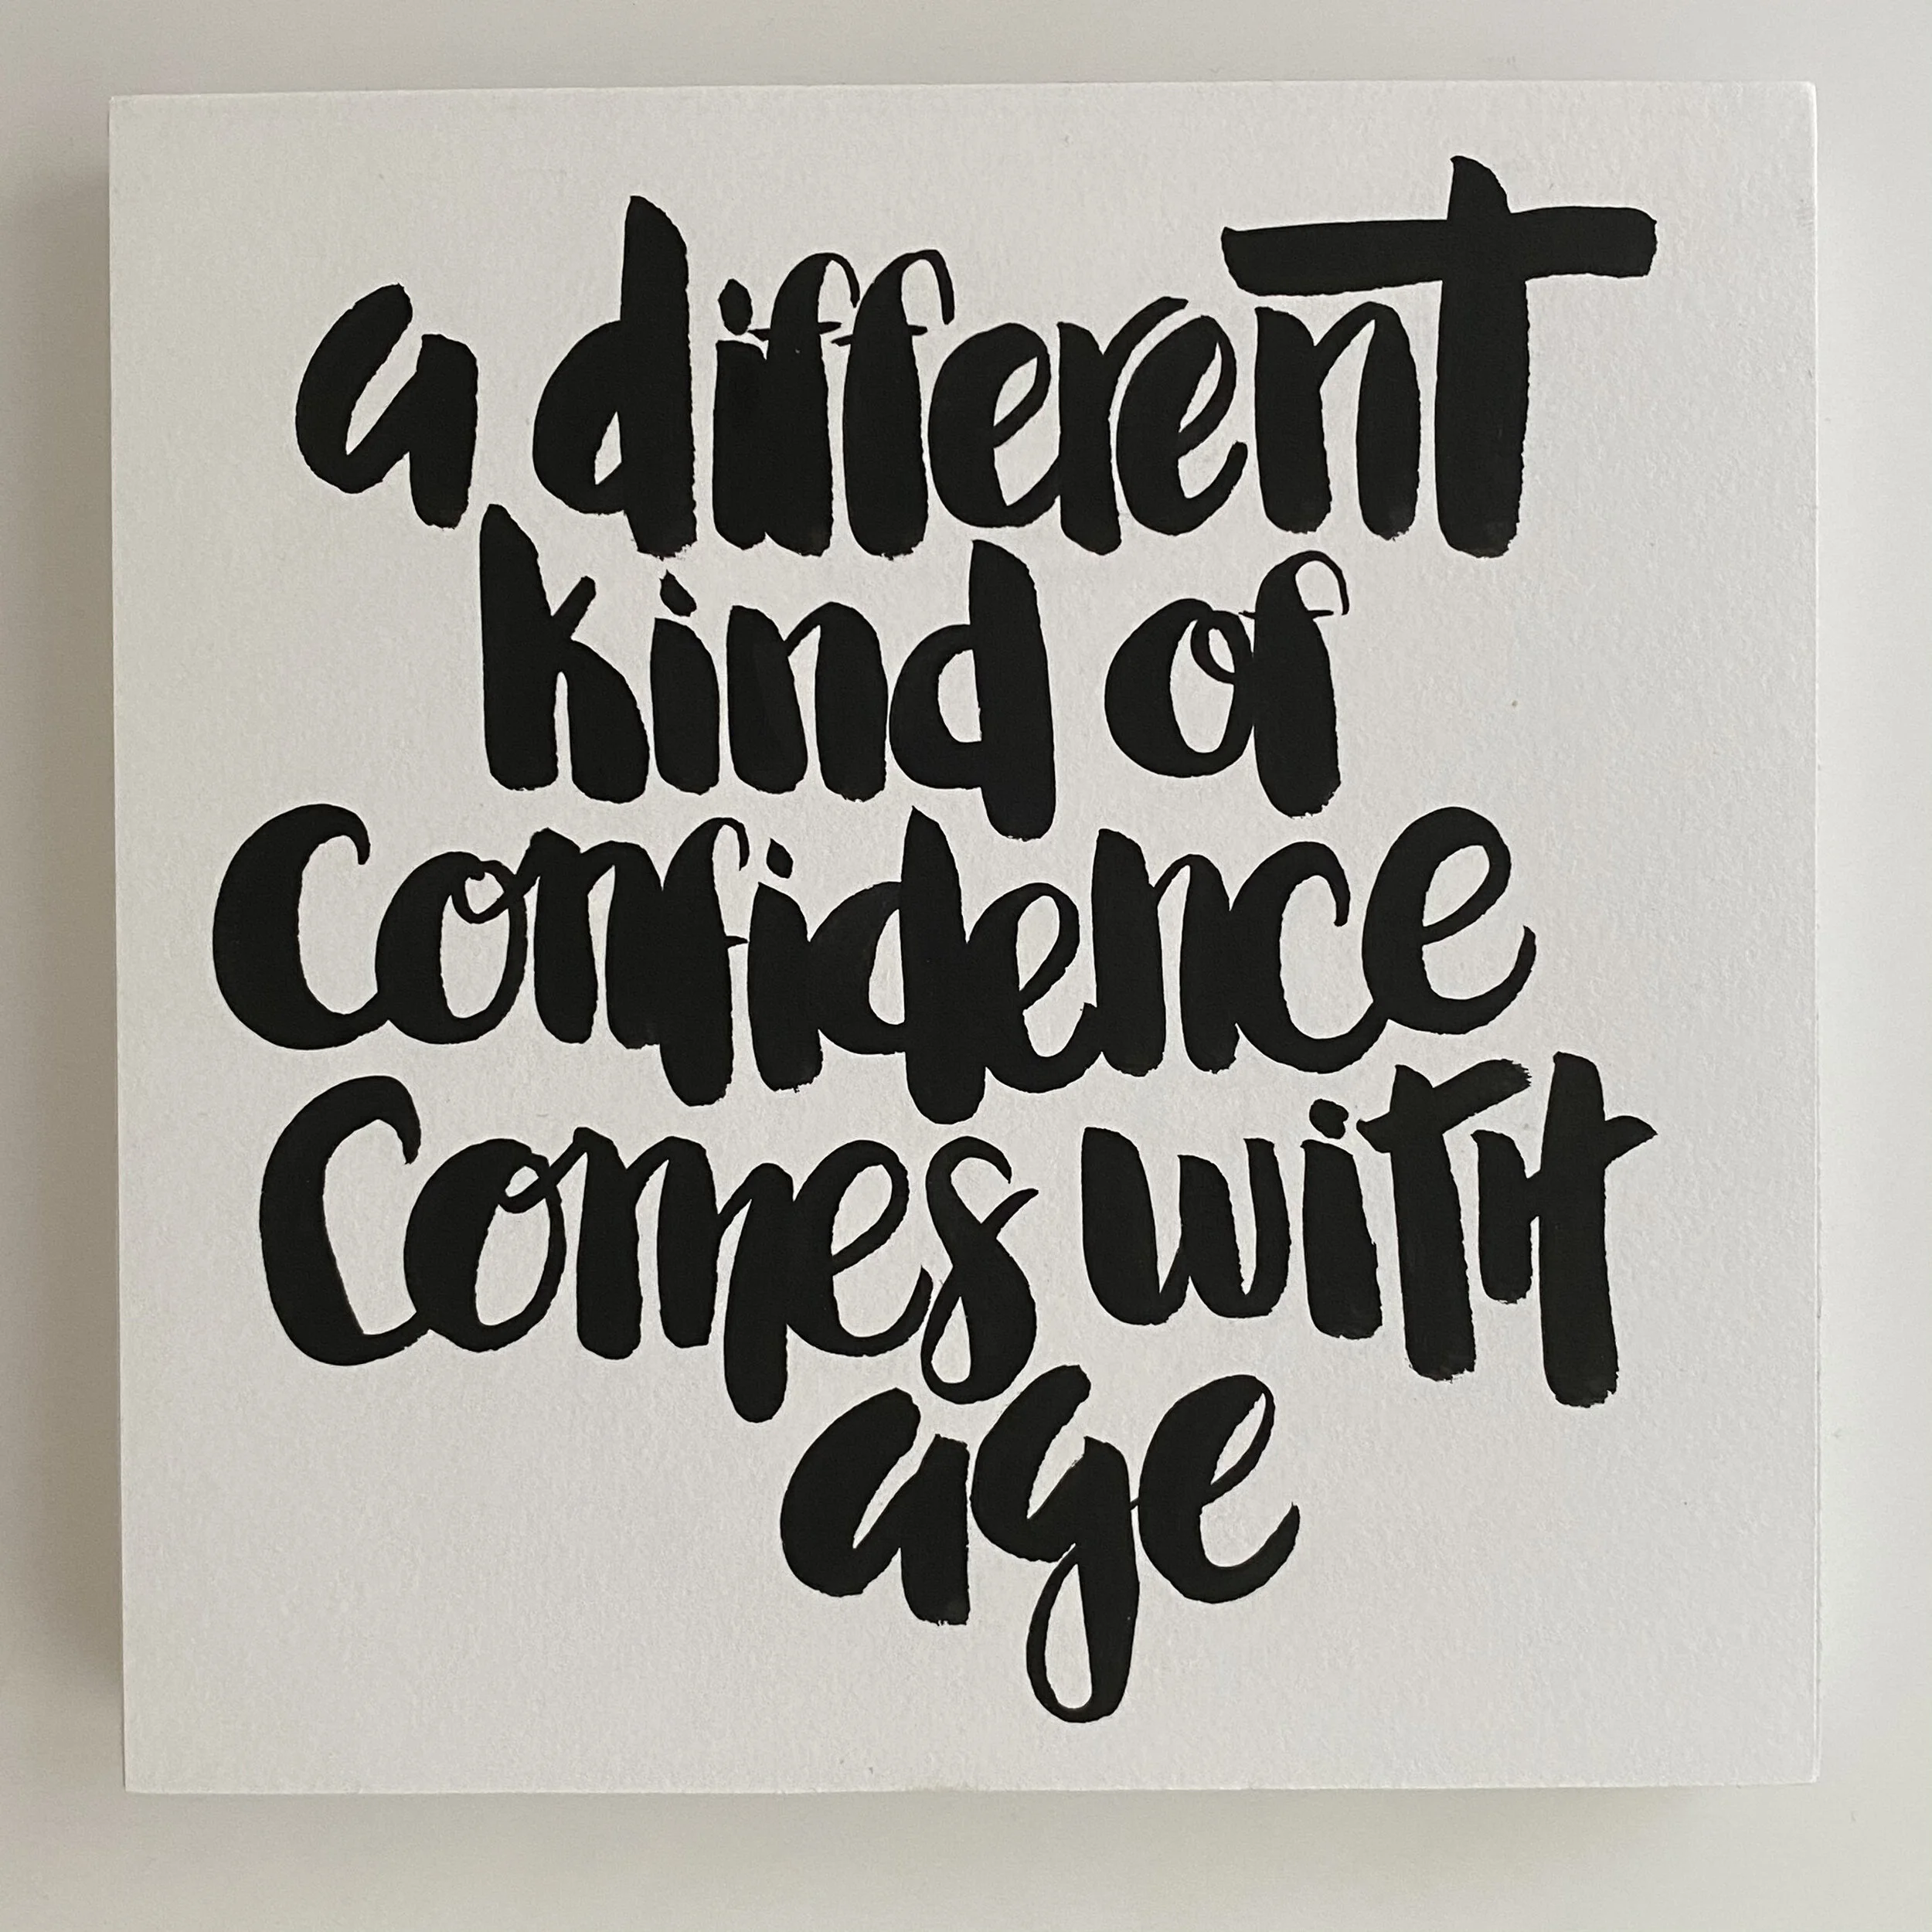 a different
kind of
Confidence
Comes with
age